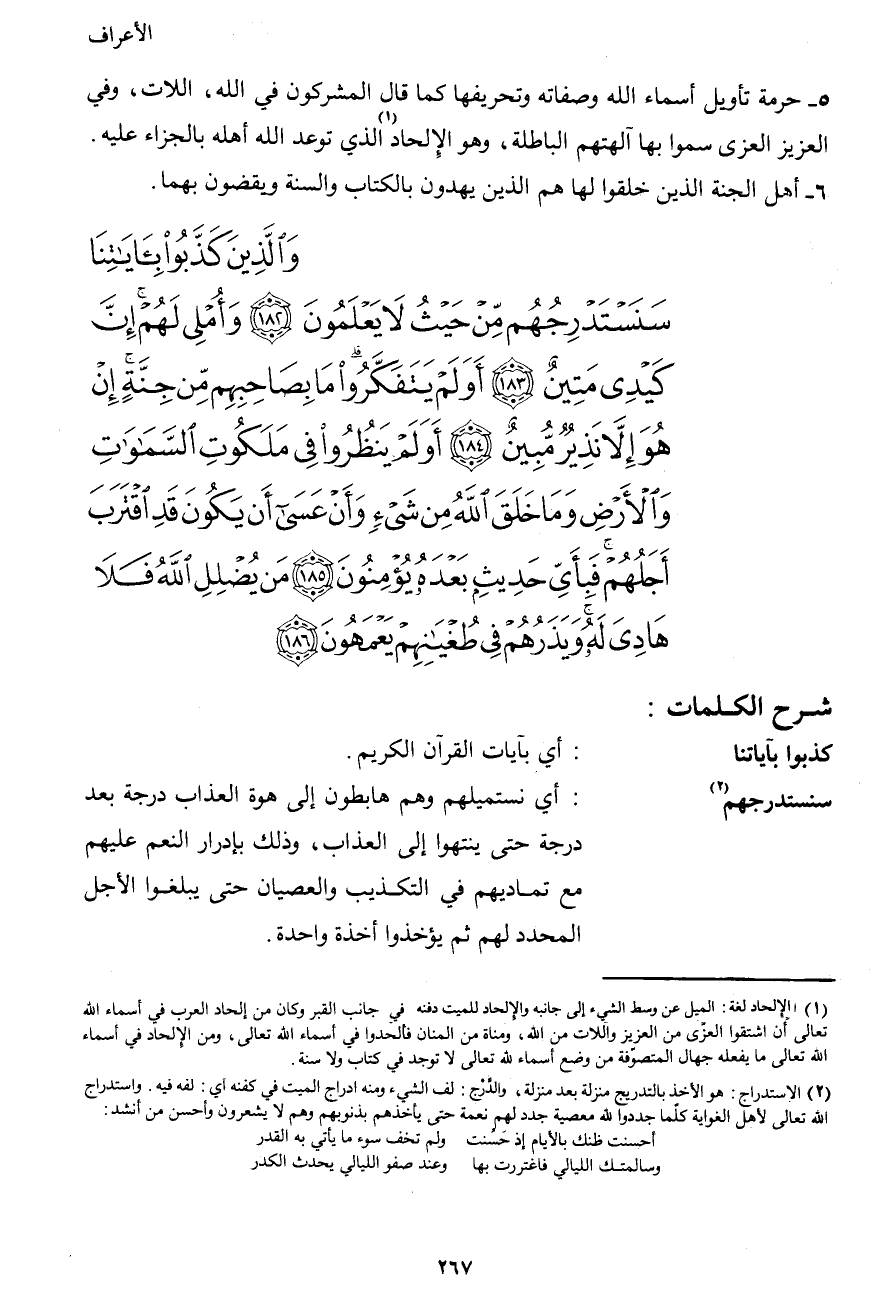 الأعراف
٥ـ حرمة تأويل أسماء الله وصفاته وتحريفها كما قال المشركون في الله، اللات، وفي
العزيز العزى سموا بها آلهتهم الباطلة، وهو الإلحاد(١) الذي توعد الله أهله بالجزاء عليه.
٦ـ أهل الجنة الذين خلقوا لها هم الذين يهدون بالكتاب والسنة ويقضون بهما.
وَٱلَّذِينَ كَذَّبُوا۟ بِـَٔايَـٰتِنَا
سَنَسْتَدْرِجُهُم مِّنْ حَيْثُ لَا يَعْلَمُونَ ﴿١٨٢﴾ وَأُمْلِى لَهُمْ ۚ إِنَّ
كَيْدِى مَتِينٌ ﴿١٨٣﴾ أَوَلَمْ يَتَفَكَّرُوا۟ ۗ مَا بِصَاحِبِهِم مِّن جِنَّةٍ ۚ إِنْ
هُوَ إِلَّا نَذِيرٌ مُّبِينٌ ﴿١٨٤﴾ أَوَلَمْ يَنظُرُوا۟ فِى مَلَكُوتِ ٱلسَّمَـٰوَٰتِ
وَٱلْأَرْضِ وَمَا خَلَقَ ٱللَّهُ مِن شَىْءٍ وَأَنْ عَسَىٰٓ أَن يَكُونَ قَدِ ٱقْتَرَبَ
أَجَلُهُمْ ۖ فَبِأَىِّ حَدِيثٍۭ بَعْدَهُۥ يُؤْمِنُونَ ﴿١٨٥﴾ مَن يُضْلِلِ ٱللَّهُ فَلَا
هَادِىَ لَهُۥ ۚ وَيَذَرُهُمْ فِى طُغْيَـٰنِهِمْ يَعْمَهُونَ ﴿١٨٦﴾
شرح الكلمات :
كذبوا بآياتنا : أي بآيات القرآن الكريم.
سنستدرجهم(٢) : أي نستميلهم وهم هابطون إلى هوة العذاب درجة بعد
درجة حتى ينتهوا إلى العذاب، وذلك بإدرار النعم عليهم
مع تماديهم في التكذيب والعصيان حتى يبلغوا الأجل
المحدد لهم ثم يؤخذوا أخذة واحدة.
(١) الإلحاد لغة: الميل عن وسط الشيء إلى جانبه والإلحاد للميت دفنه في جانب القبر وكان من إلحاد العرب في أسماء الله
تعالى أن اشتقوا العزّى من العزيز واللات من الله، ومناة من المنان فألحدوا في أسماء الله تعالى، ومن الإلحاد في أسماء
الله تعالى ما يفعله جهال المتصوّفة من وضع أسماء لله تعالى لا توجد في كتاب ولا سنة.
(٢) الاستدراج: هو الأخذ بالتدريج منزلة بعد منزلة، والدَّرْج: لف الشيء ومنه ادراج الميت في كفنه أي: لفه فيه. واستدراج
الله تعالى لأهل الغواية كلّما جددوا لله معصية جدد لهم نعمة حتى يأخذهم بذنوبهم وهم لا يشعرون وأحسن من أنشد:
أحسنت ظنك بالأيام إذ حَسُنت ولم تخف سوء ما يأتي به القدر
وسالمتك الليالي فاغتررت بها وعند صفو الليالي يحدث الكدر
٢٦٧